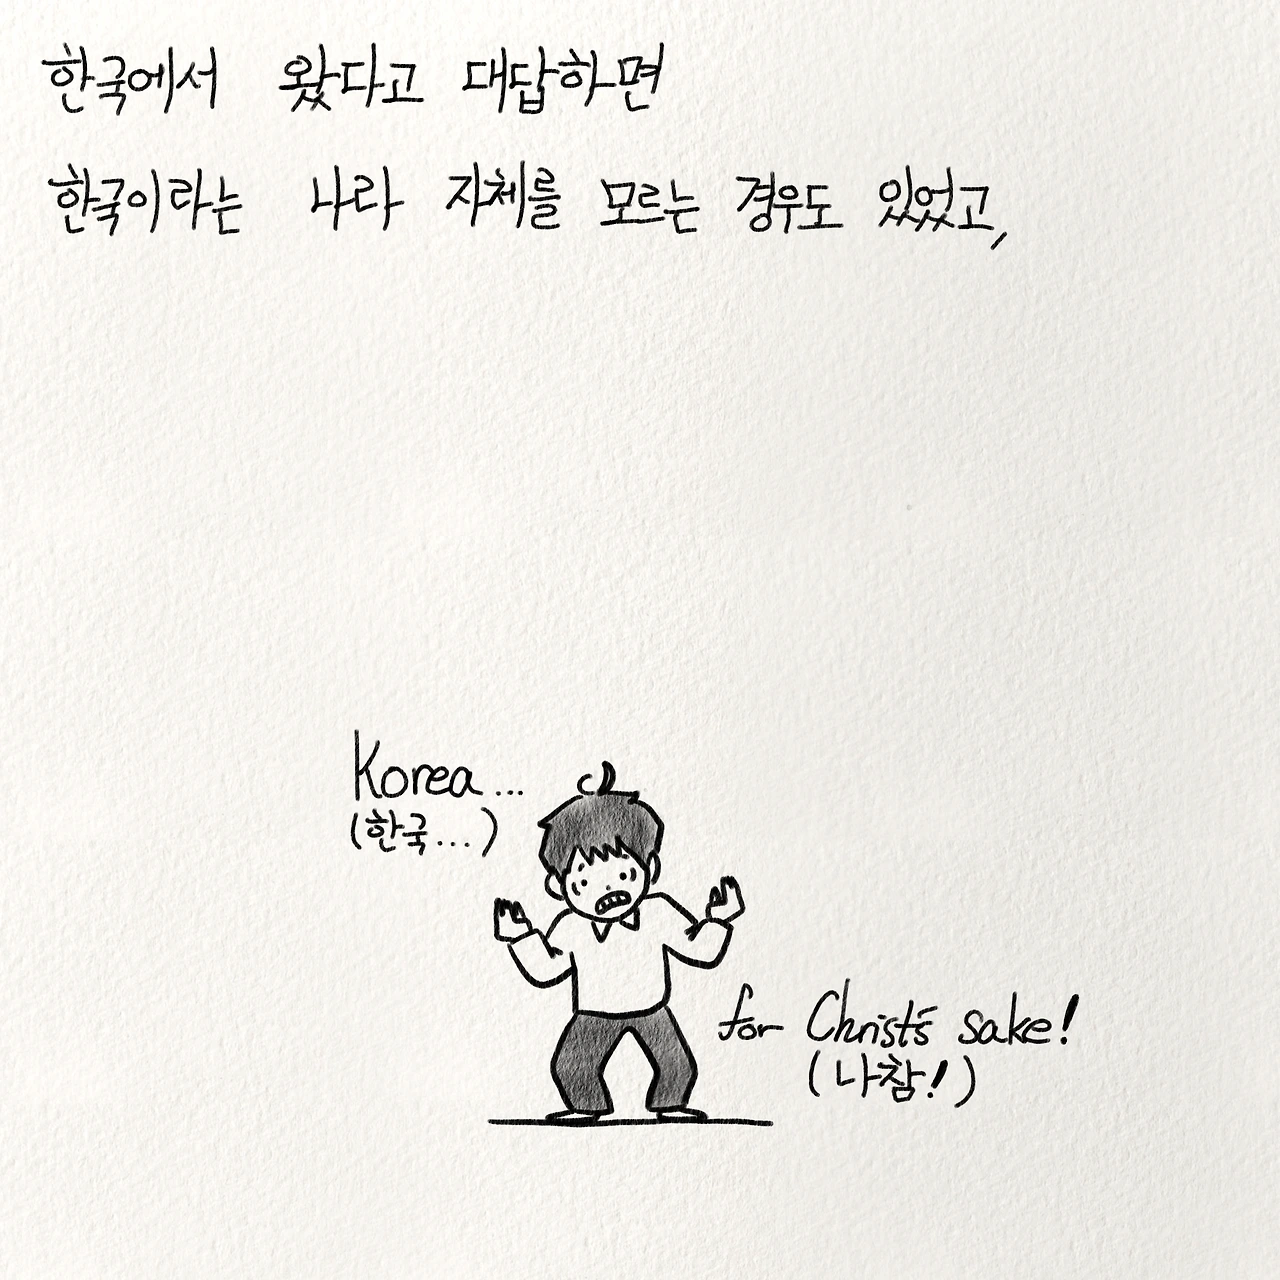 한국에서 왔다고 대답하면
한국이라는 나라 자체를 모르는 경우도 있었고,
Korea...
(한국...)
for Christ's sake!
(나참!)